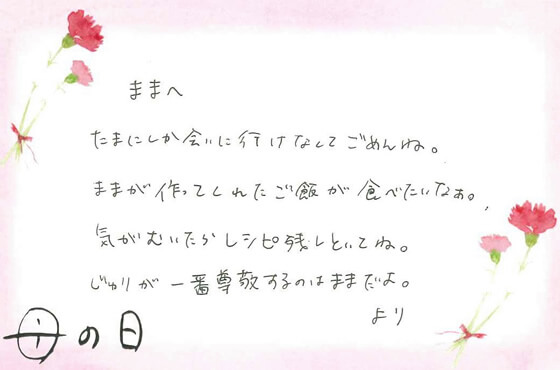 ままへ
たまにしか会いに行けなくてごめんね。
ままが作ってくれたご飯が食べたいなぁ。
気がむいたらレシピ残しといてね。
じゅりが一番尊敬するのはままだよ。
より
母の日